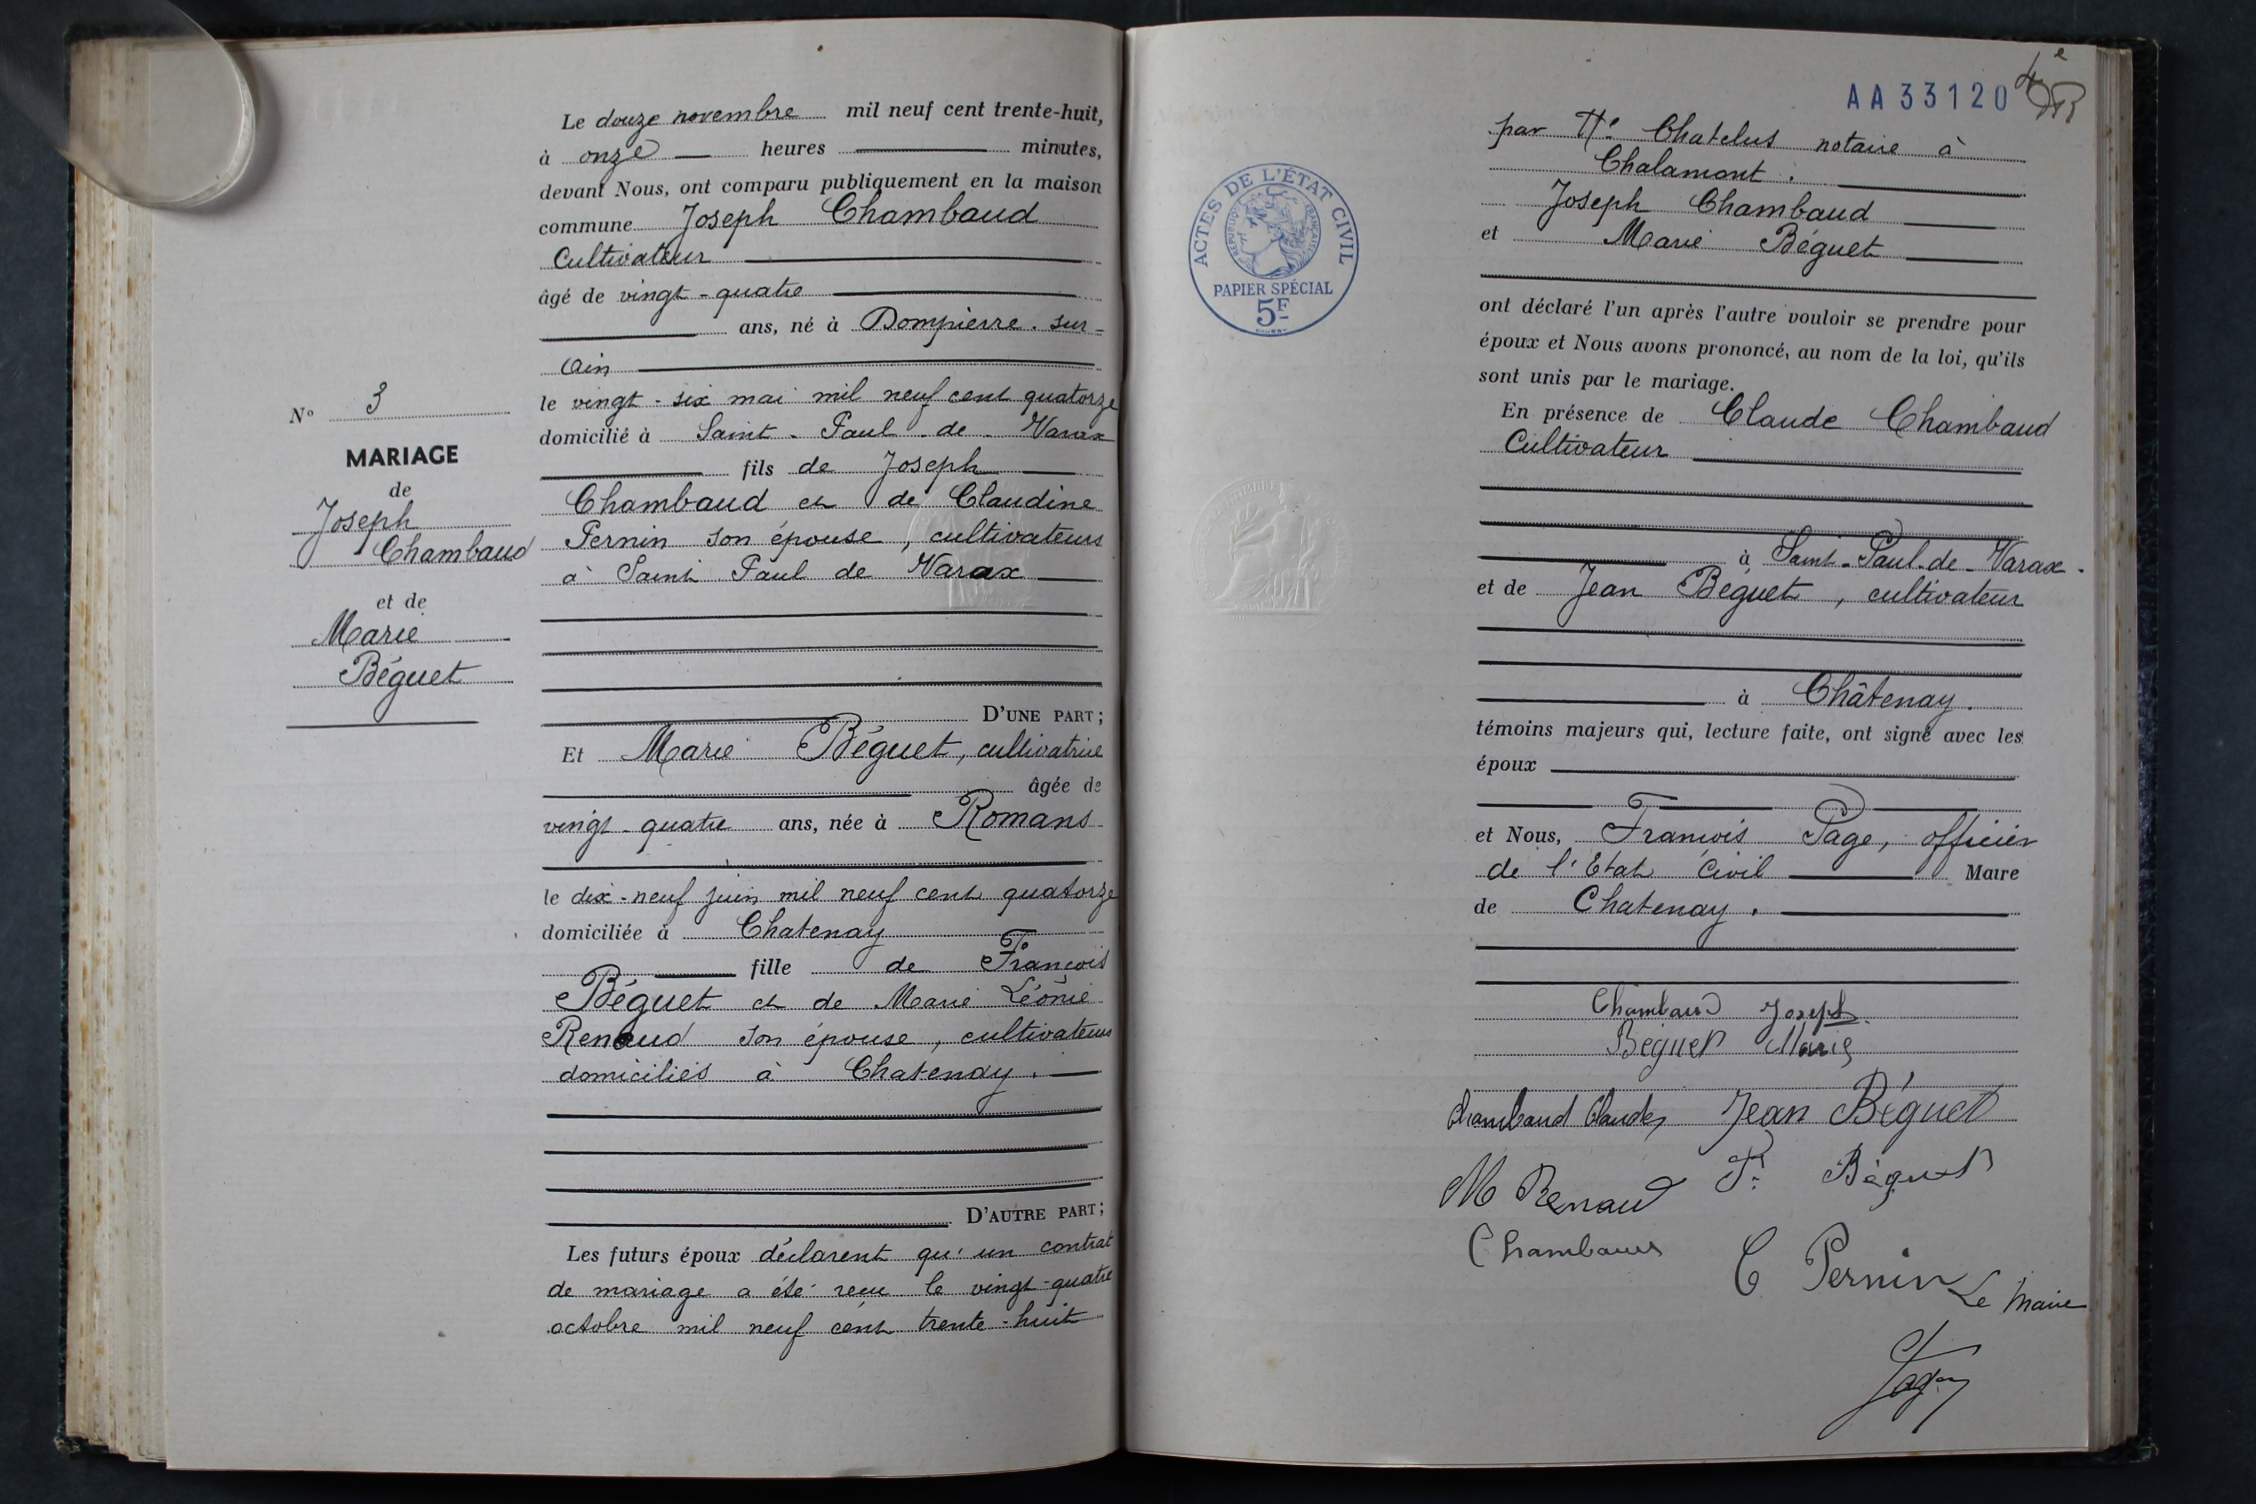 Le douze novembre mil neuf cent trente-huit,
à onze heures minutes,
devant Nous, ont comparu publiquement en la maison
commune Joseph Chambaud
Cultivateur
âgé de vingt-quatre
ans, né à Dompierre-sur-
Ain
le vingt-six mai mil neuf cent quatorze
domicilié à Saint-Paul-de-Varax
fils de Joseph
Chambaud et de Claudine
Pernin son épouse, cultivateurs
à Saint Paul de Varax
D'UNE PART;
N° 3
MARIAGE
de
Joseph
Chambaud
et de
Marie
Béguet
Et Marie Béguet, cultivatrice
âgée de
vingt-quatre ans, née à Romans
le dix-neuf juin mil neuf cent quatorze
domiciliée à Chatenay
fille de François
Béguet et de Marie Léonie
Renaud son épouse, cultivateurs
domiciliés à Chatenay.
D'AUTRE PART;
Les futurs époux déclarent qu'un contrat
de mariage a été reçu le vingt-quatre
octobre mil neuf cent trente-huit
AA33120
4e
par Me Chatelus notaire à
Chalamont.
Joseph Chambaud
et Marie Béguet
ACTES DE L'ÉTAT CIVIL
RÉPUBLIQUE FRANÇAISE
PAPIER SPÉCIAL
5F
ont déclaré l'un après l'autre vouloir se prendre pour
époux et Nous avons prononcé, au nom de la loi, qu'ils
sont unis par le mariage.
En présence de Claude Chambaud
Cultivateur
à Saint-Paul-de-Varax.
et de Jean Béguet, cultivateur
à Châtenay.
témoins majeurs qui, lecture faite, ont signé avec les
époux
et Nous, François Page, officier
de l'Etat Civil Maire
de Chatenay.
Chambaud Joseph
Béguet Marie
Chambaud Claude Jean Béguet
M Renaud F. Béguet
Chambaud C Pernin
Le Maire
Page